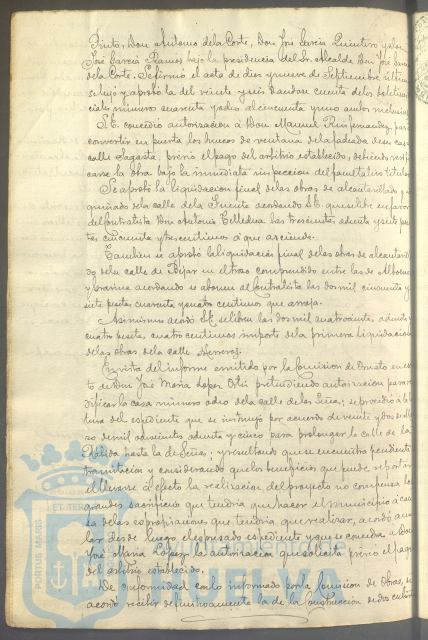 Pinto, Don Antonio de la Corte, Don José García Quintero y Don
José García Ramos bajo la presidencia del Sr. Alcalde Don José García
de la Corte. Se firmó el acta de diez y nueve de Septiembre último
se leyó y aprobó la del veinte y seis dandose cuenta de los boletines
ciales número cuarenta y ocho al cincuenta y uno ambos inclusive
S.E. concedió autorización á Don Manuel Ruifernandez, para
convertir en puerta los huecos de ventana de la fachada de su casa
calle Sagasta, previo el pago del arbitrio establecido, debiendo
carse la obra bajo la inmediata inspección del facultativo titular
Se aprobó la liquidacion final de las obras de alcantarillado y
quinado de la calle de la Fuente acordando S.E. que se libre en favor
del contratista Don Antonio las trescientas ochenta y siete pese
tas cincuenta y tres centimos á que asciende.
Tambien se aprobó la liquidación final de las obras de alcantari
do de la calle de Bejar en el trozo comprendido entre las de
y acordando se abonen al contratista las dos mil cincuenta y
siete pesetas cuarenta y cuatro centimos que arroja.
Asimismo acordó S.E. se libren las dos mil cuatrocientas, ochenta y
cuatro pesetas, cuatro centimos importe de la primera liquidacion
de las obras de la calle Herreros.
En vista del informe emitido por la Comision de Ornato en
to de Don José María Lopez Ortiz pretendiendo autorización para
dificar la casa número ocho de la calle de las Señas; se procedió á la
tura del espediente que se instruyó por acuerdo de veinte y dos de
zo de mil ochocientos ochenta y cinco para prolongar la calle de la
Rábida hasta la de Señas; y resultando que se encuentra pendiente
tramitación y considerando que los beneficios que puede reportar
el llevarse á efecto la realizacion del proyecto no compensa los
grandes sacrificios que tendria que hacer el municipio á cau
sa de las espropiaciones que tendria que realizar, acordó anu
lar desde luego el espresado espediente y que se conceda á Don
José María Lopez la autorizacion que solicita previo el pago
del arbitrio establecido.
De conformidad con lo informado por la Comision de Obras, se
acordó recibir definitivamente la de la construccion de dos
PORTUS MARIS ET TERRAE
Ayuntamiento de
HUELVA